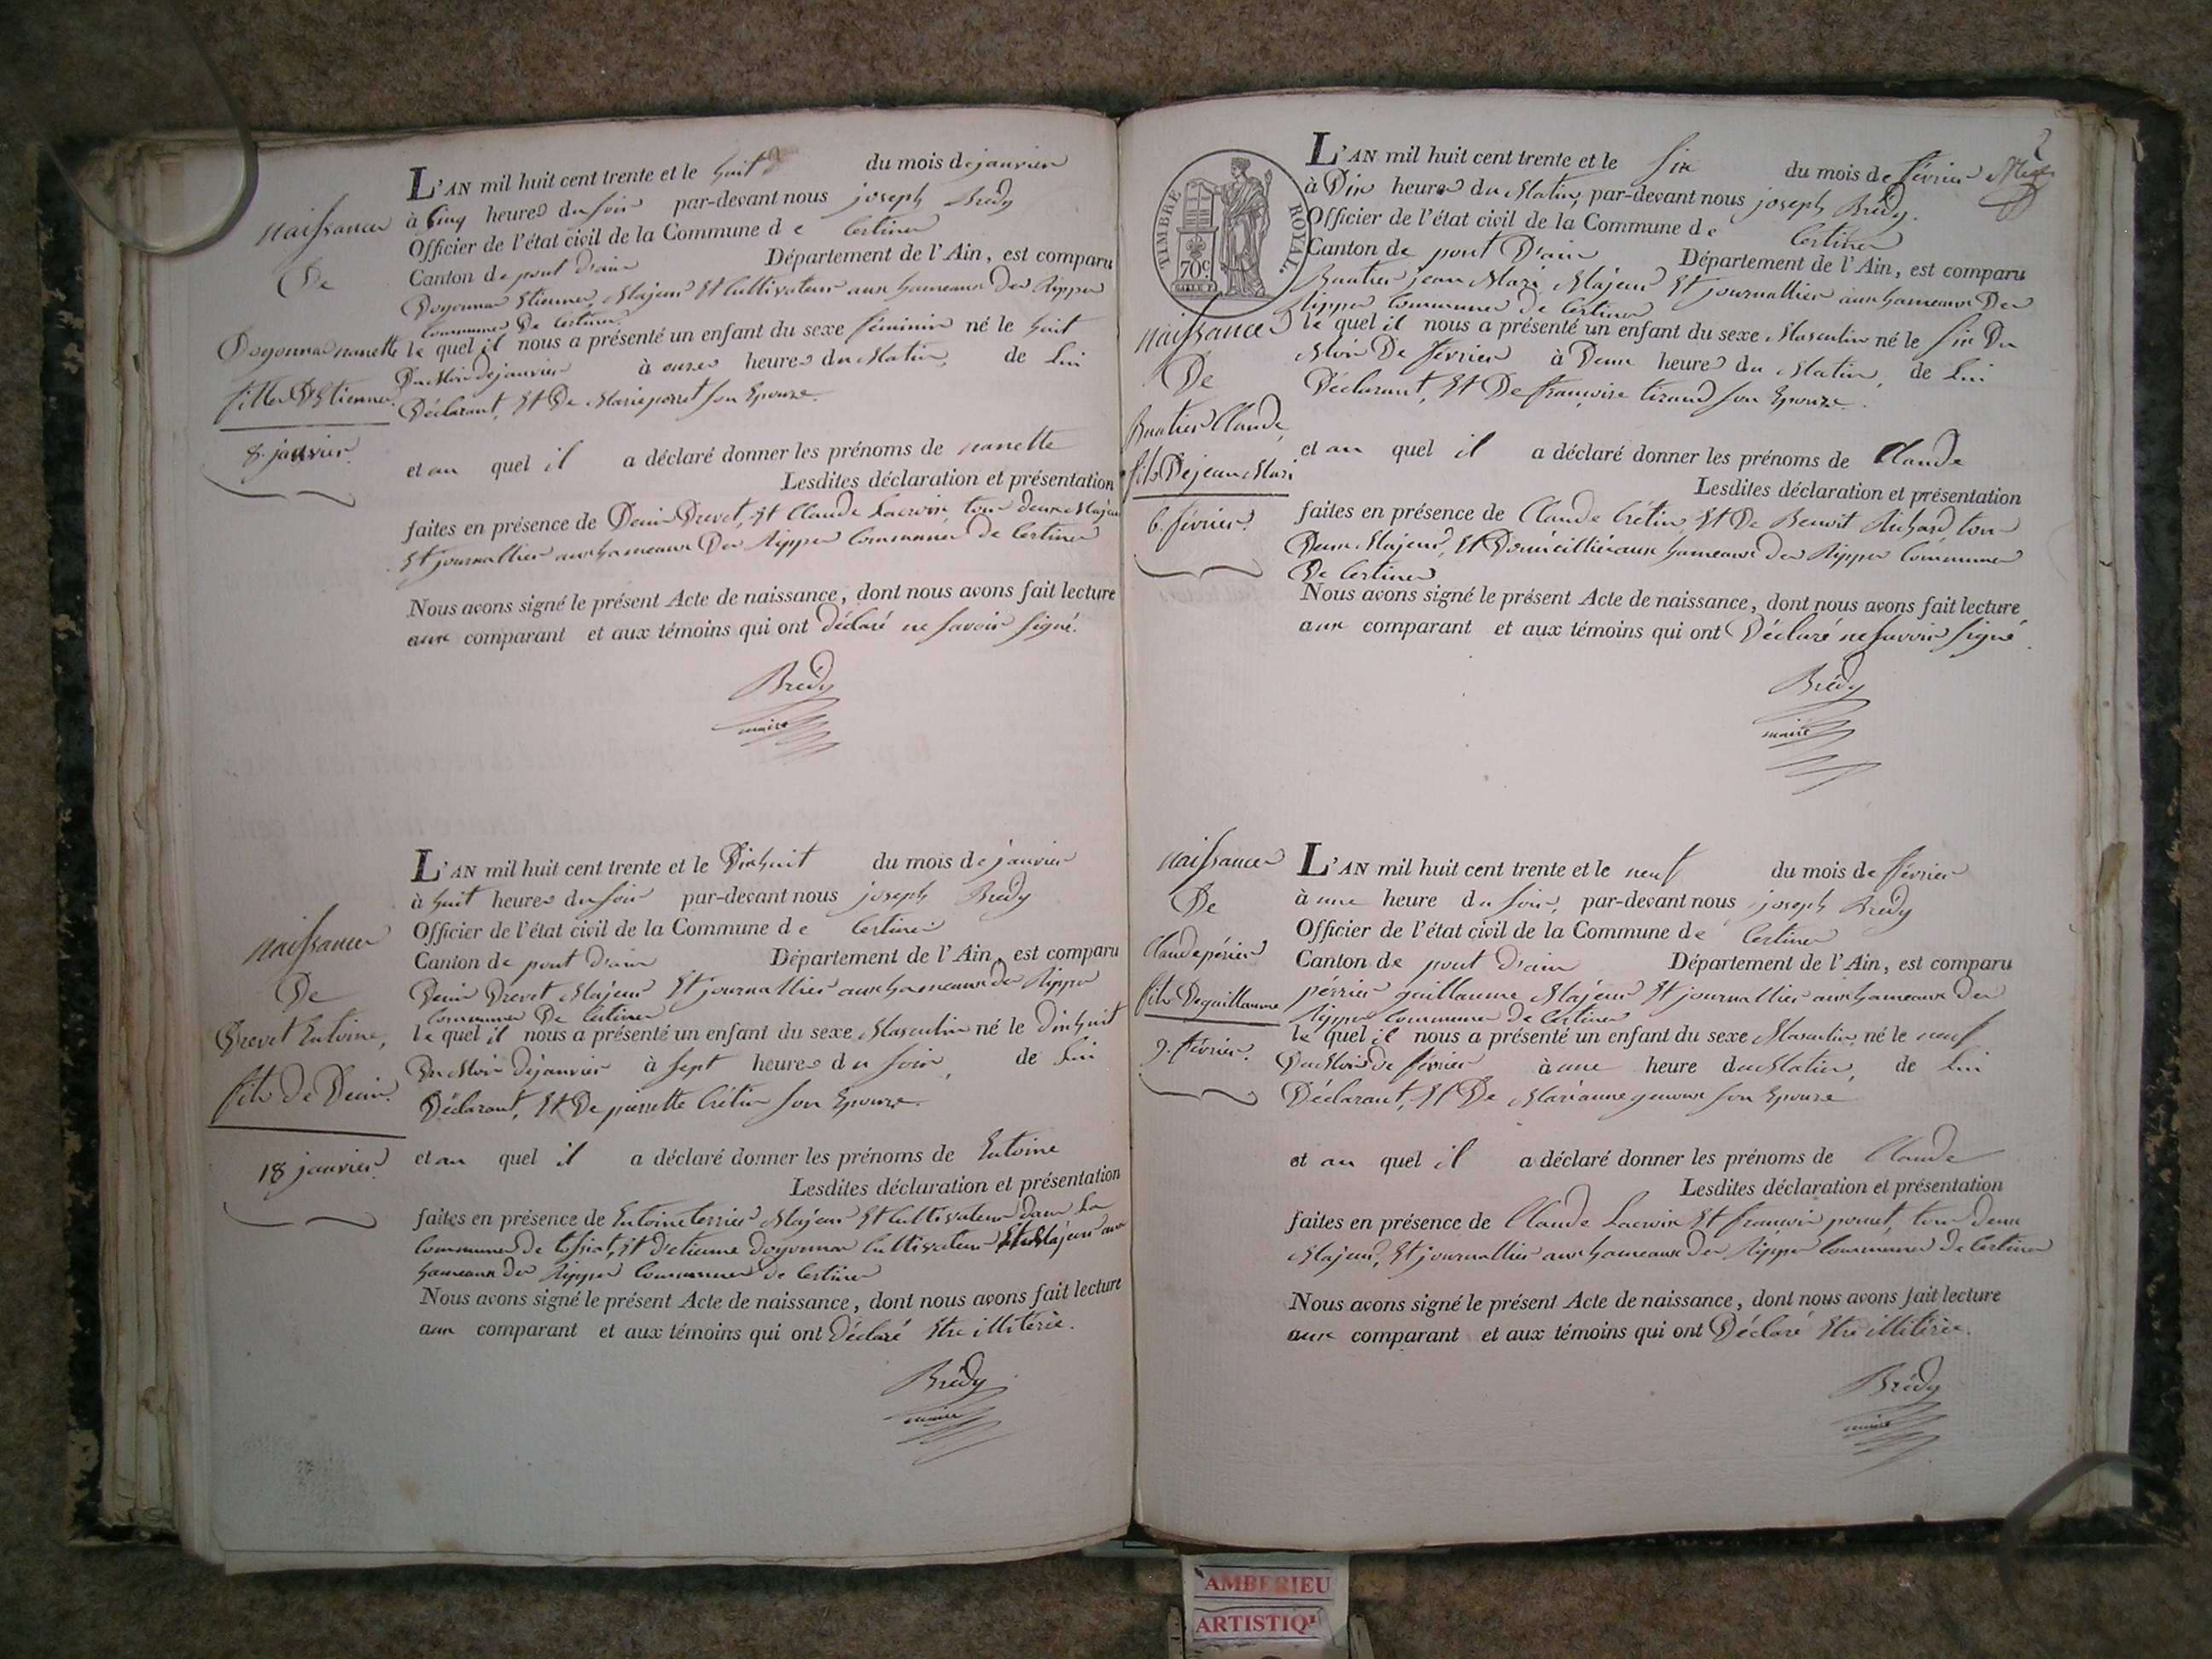 naissance
De
Doyonnas nanette
fille D'Etienne.
8. janvier.
L'AN mil huit cent trente et le huit du mois de janvier
à Cinq heures du soir par-devant nous joseph Brédy
Officier de l'état civil de la Commune de Certines
Canton de pont d'ain Département de l'Ain, est comparu
Doyonnas Etienne, Majeur Et Cultivateur aux hameaux Des Rippes
Commune De Certines
le quel il nous a présenté un enfant du sexe féminin né le huit
Du Mois de janvier à onze heures du Matin, de Lui
Déclarant, Et De Marie perret son Epouse.
et au quel il a déclaré donner les prénoms de nanette
Lesdites déclaration et présentation
faites en présence de Denis Brevet, Et Claude Lacroix, tous deux Majeurs
Et journallier aux hameaux Des Rippes Commune de Certines
Nous avons signé le présent Acte de naissance, dont nous avons fait lecture
aux comparant et aux témoins qui ont déclaré ne savoir signé.
Brédy
maire
naissance
De
Brevet Entoine,
fils de Denis.
18 janvier.
L'AN mil huit cent trente et le Dixhuit du mois de janvier
à huit heures du soir par-devant nous joseph Brédy
Officier de l'état civil de la Commune de Certines
Canton de pont d'ain Département de l'Ain, est comparu
Denis Brevet Majeur Et journallier aux hameaux des Rippes
Commune De Certines
le quel il nous a présenté un enfant du sexe Masculin né le dixhuit
Du Mois De janvier à sept heures du soir, de Lui
Déclarant, Et De pierrette Crétin son Epouse.
et au quel il a déclaré donner les prénoms de Entoine
Lesdites déclaration et présentation
faites en présence de Entoine terrier Majeur Et Cultivateur dans La
Commune de tossiat, Et d'etienne doyonnas Cultivateur Majeur aux
hameaux des Rippes Commune de Certines
Nous avons signé le présent Acte de naissance, dont nous avons fait lecture
aux comparant et aux témoins qui ont Déclaré Etre illitérés.
Brédy
maire
2
TIMBRE ROYAL.
70c
naissance
De
Buatier Claude,
fils De jean Mari
6. février.
L'AN mil huit cent trente et le six du mois de février
à Dix heures du Matin, par-devant nous joseph Brédy.
Officier de l'état civil de la Commune de Certines
Canton de pont D'ain Département de l'Ain, est comparu
Buatier jean Mari Majeur Et journallier aux hameaux Des
Rippes Commune de Certines
le quel il nous a présenté un enfant du sexe Masculin né le six Du
Mois De février à Deux heures du Matin, de Lui
Déclarant, Et De françoise tirand son Epouse.
et au quel il a déclaré donner les prénoms de Claude
Lesdites déclaration et présentation
faites en présence de Claude Crétin, Et De Benoit Richard, tous
Deux Majeurs, Et Domicilliés aux hameaux des Rippes Commune
De Certines
Nous avons signé le présent Acte de naissance, dont nous avons fait lecture
aux comparant et aux témoins qui ont Déclaré ne savoir signé.
Brédy
maire
naissance
De
Claude périer
fils De guillaume
9. février.
L'AN mil huit cent trente et le neuf du mois de février
à une heure du soir, par-devant nous joseph Brédy
Officier de l'état civil de la Commune de Certines
Canton de pont d'ain Département de l'Ain, est comparu
périer guillaume Majeur Et journallier aux hameaux des
Rippes Commune de Certines
le quel il nous a présenté un enfant du sexe Masculin, né le neuf
Du Mois de février à une heure du Matin, de Lui
Déclarant, Et De Marianne son Epouse
et au quel il a déclaré donner les prénoms de Claude
Lesdites déclaration et présentation
faites en présence de Claude Lacroix Et françois, tous deux
Majeurs, Et journallier aux hameaux des Rippes Commune de Certines
Nous avons signé le présent Acte de naissance, dont nous avons fait lecture
aux comparant et aux témoins qui ont Déclaré Etre illitérés.
Brédy
maire
AMBERIEU
ARTISTIQ